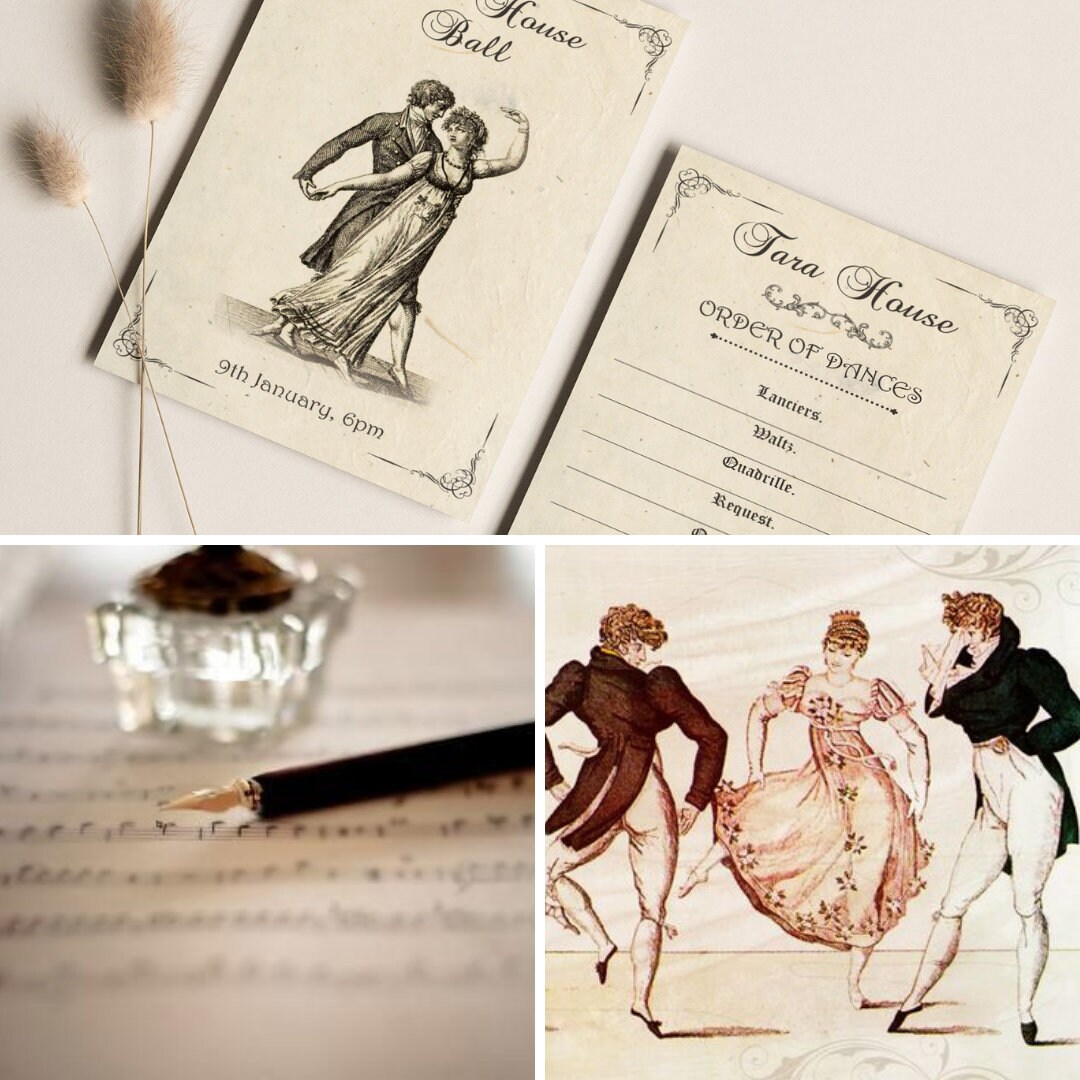 House
Ball
9th January, 6pm
Tara House
ORDER OF DANCES
Lanciers.
Waltz.
Quadrille.
Request.